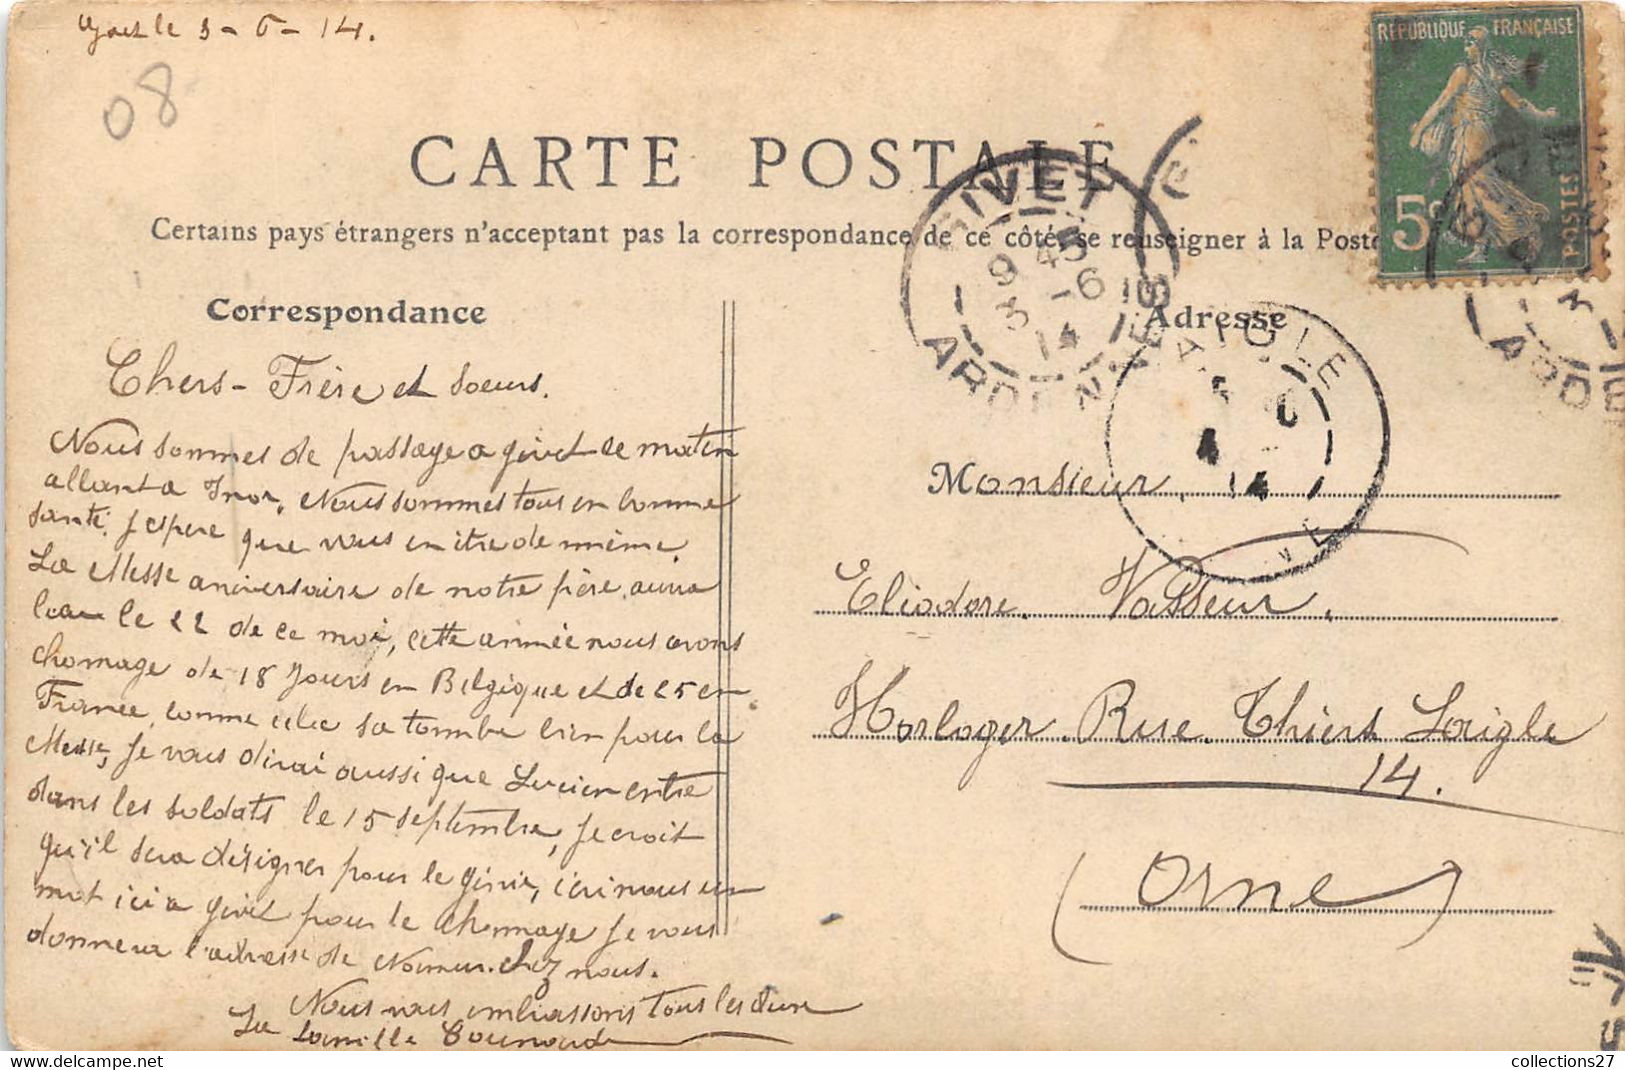 le 3-6-14.
08
RÉPUBLIQUE FRANÇAISE
5c
POSTES
CARTE POSTALE
Certains pays étrangers n'acceptent pas la correspondance de ce côté, se renseigner à la Poste
GIVET
9 45
3 - 6
14
ARDENNES
Correspondance
Adresse
AIGLE
14
Chers - Frère et soeurs.
Nous sommes de passage a givet ce matin
allant a Nous sommes tous en bonne
santé, J espere que vous en itre de mième.
La Messe aniversaire de notre père aura
lieu le 22 de ce moi, cette année nous avons
chomage de 18 Jours en Belgique et de 25 en
France, comme cela sa tombe bien pour la
Messe, Je vous dirai aussi que Lucien entre
dans les soldats le 15 septembre, Je croit
qu'il sera désigner pour le génie, écri nous un
mot ici a givet pour le chommage Je vous
donnerai l'adresse de Namur chez nous.
Nous vous embrassons tous les deux
La famille
Monsieur
Eliodore. Vasseur.
Horloger. Rue. Thiers Laigle
14.
(Orne)
collections27